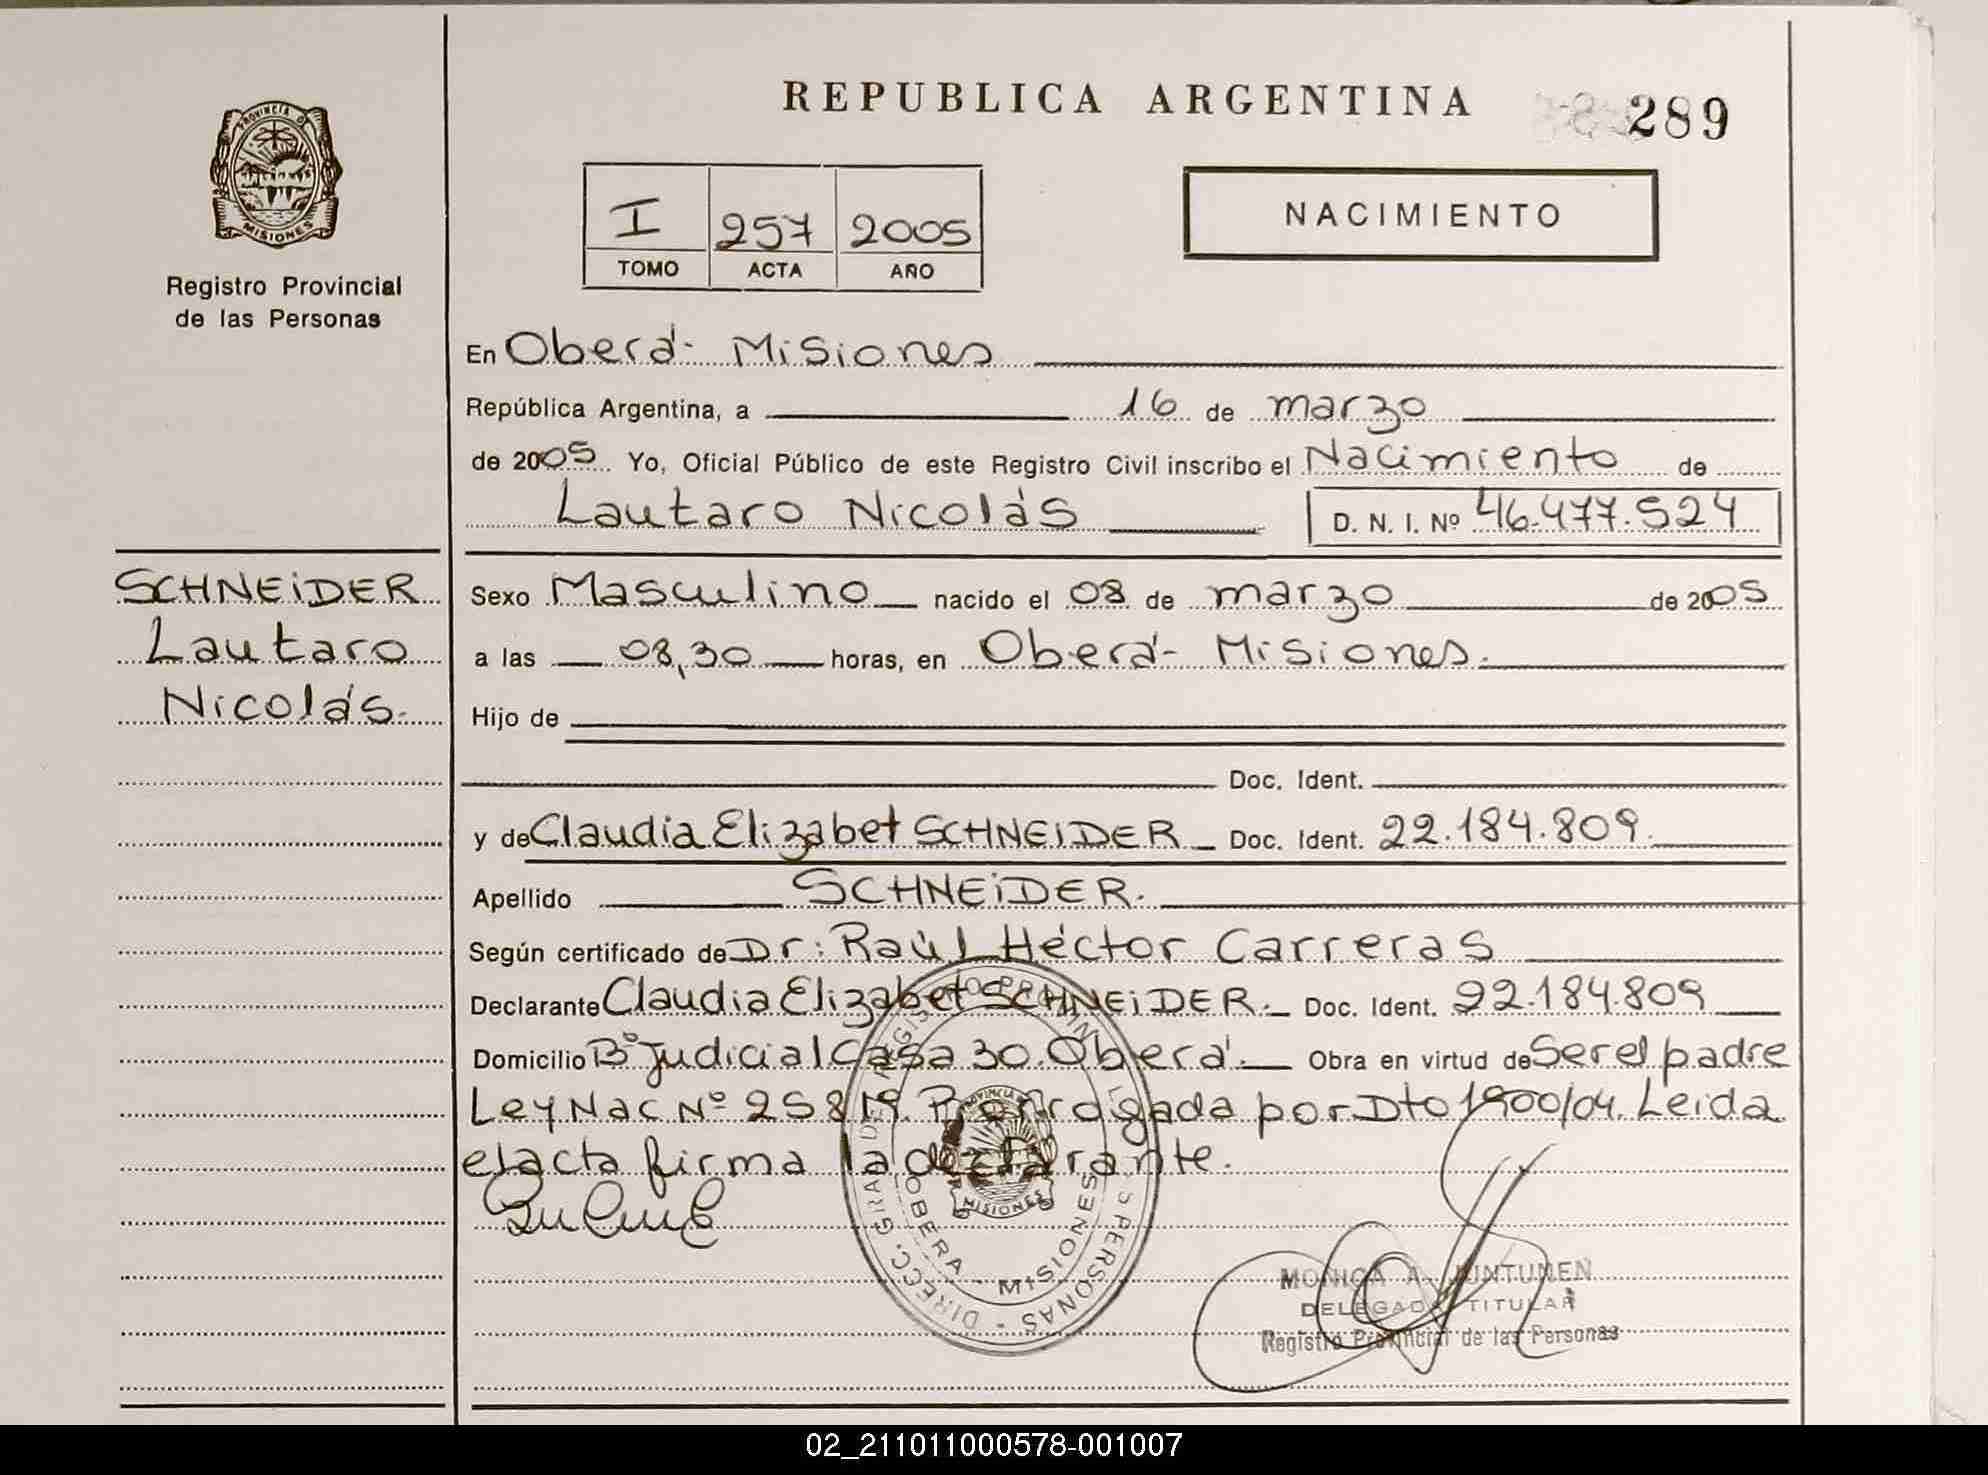 REPUBLICA ARGENTINA
289
PROVINCIA DE
MISIONES
Registro Provincial
de las Personas
I 257 2005
TOMO ACTA AÑO
NACIMIENTO
En Oberá- Misiones
República Argentina, a 16 de marzo
de 2005 Yo, Oficial Público de este Registro Civil inscribo el Nacimiento de
Lautaro Nicolás D. N. I. Nº 46.477.524
SCHNEIDER
Lautaro
Nicolás.
Sexo Masculino nacido el 08 de marzo de 2005
a las 08,30 horas, en Oberá- Misiones.
Hijo de
Doc. Ident.
y de Claudia Elizabet SCHNEIDER Doc. Ident. 22.184.809.
Apellido SCHNEIDER.
Según certificado de Dr: Raúl Héctor Carreras
Declarante Claudia Elizabet SCHNEIDER. Doc. Ident. 22.184.809
Domicilio Bº Judicial Casa 30. Oberá. Obra en virtud de Ser el padre
Ley Nac Nº 25819. Prorrogada por Dto 1900/04. Leida
el acta firma la declarante.
OBERA - MISIONES
MISIONES
MONICA A. JUNTUNEN
DELEGADA TITULAR
Registro Provincial de las Personas
02_211011000578-001007